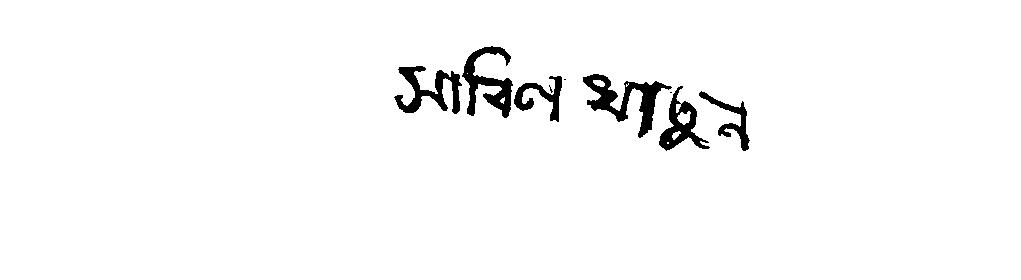 সাবিনা খাতুন